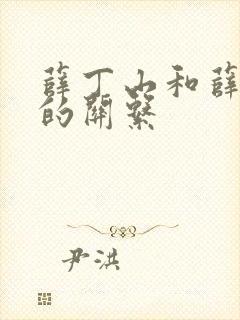 薛丁山和薛
的關系
尹洪